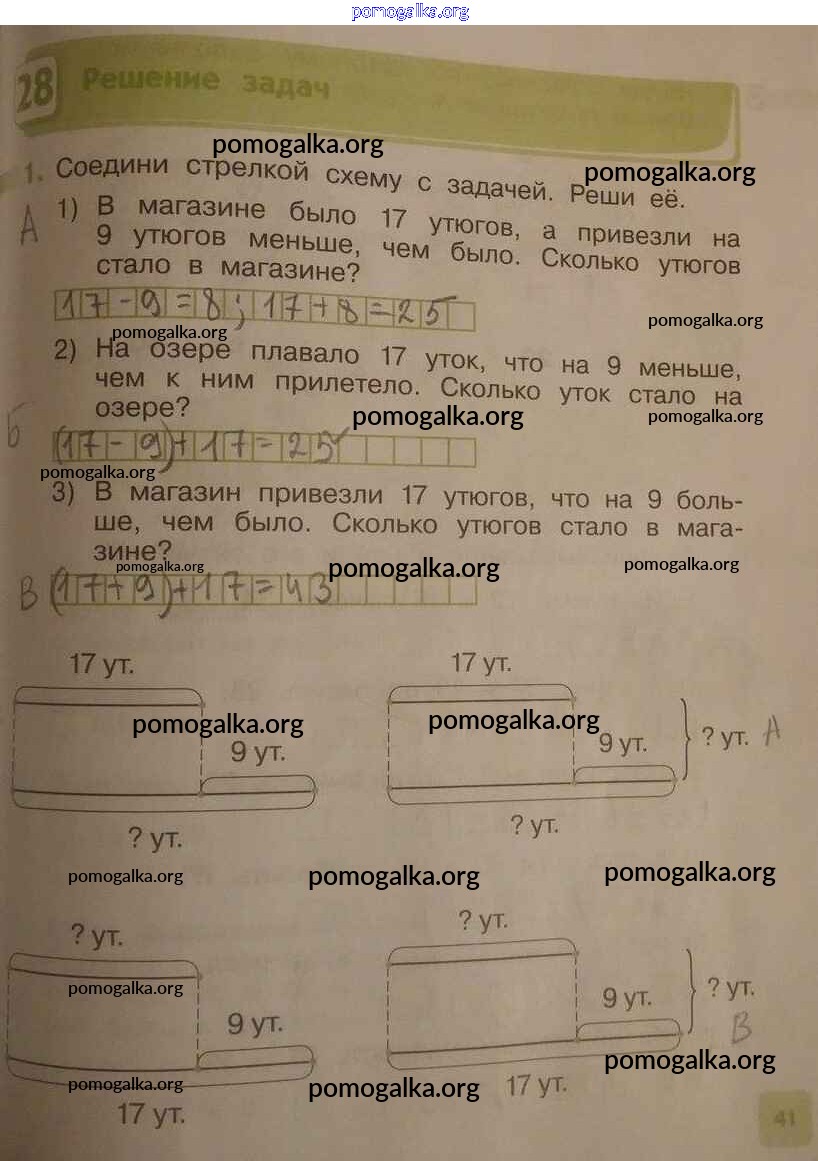 pomogalka.org
28 Решение задач
pomogalka.org
pomogalka.org
1. Соедини стрелкой схему с задачей. Реши её.
А 1) В магазине было 17 утюгов, а привезли на
9 утюгов меньше, чем было. Сколько утюгов
стало в магазине?
17-9=8; 17+8=25
pomogalka.org
pomogalka.org
2) На озере плавало 17 уток, что на 9 меньше,
чем к ним прилетело. Сколько уток стало на
озере?
pomogalka.org
pomogalka.org
Б (17-9)+17=25
pomogalka.org
3) В магазин привезли 17 утюгов, что на 9 боль-
ше, чем было. Сколько утюгов стало в мага-
зине?
pomogalka.org
pomogalka.org
pomogalka.org
В (17+9)+17=43
17 ут.
17 ут.
pomogalka.org
pomogalka.org
9 ут.
9 ут.
? ут. А
? ут.
? ут.
pomogalka.org
pomogalka.org
pomogalka.org
? ут.
? ут.
pomogalka.org
9 ут.
9 ут.
? ут.
В
pomogalka.org
pomogalka.org
pomogalka.org
17 ут.
17 ут.
41